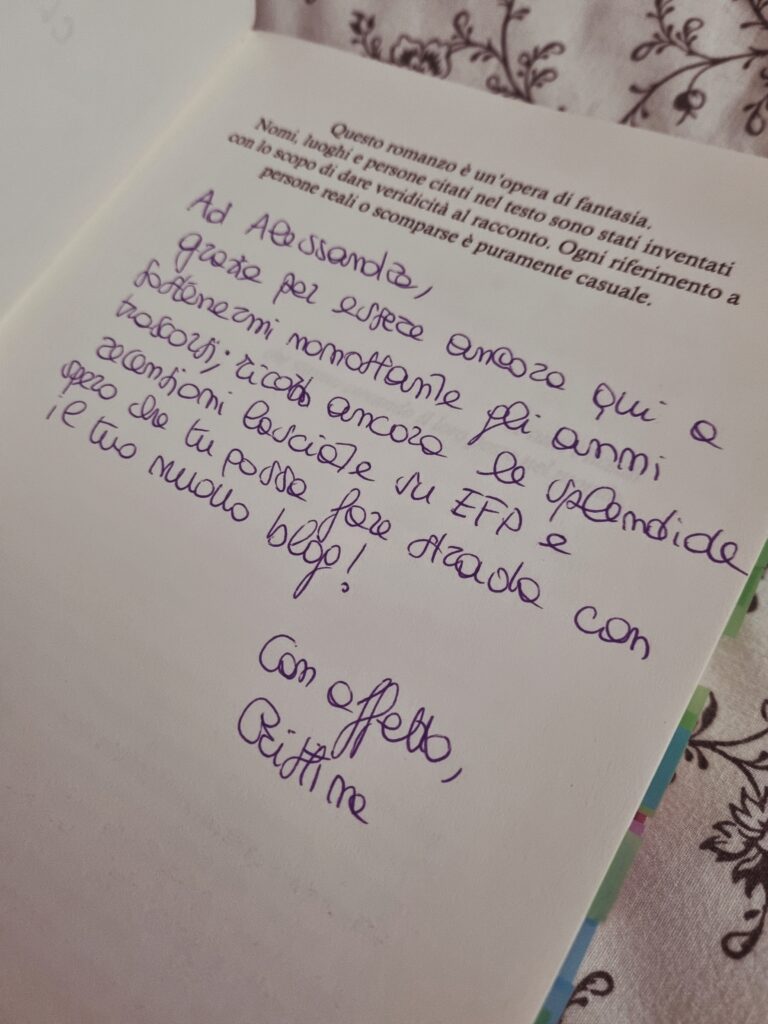 Questo romanzo è un'opera di fantasia.
Nomi, luoghi e persone citati nel testo sono stati inventati
con lo scopo di dare veridicità al racconto. Ogni riferimento a
persone reali o scomparse è puramente casuale.
Ad Alessandra,
grazie per essere ancora qui a
sostenermi nonostante gli anni
trascorsi; ricordo ancora le splendide
recensioni lasciate su EFP e
spero che tu possa fare strada con
il tuo nuovo blog!
Con affetto,
Cristina